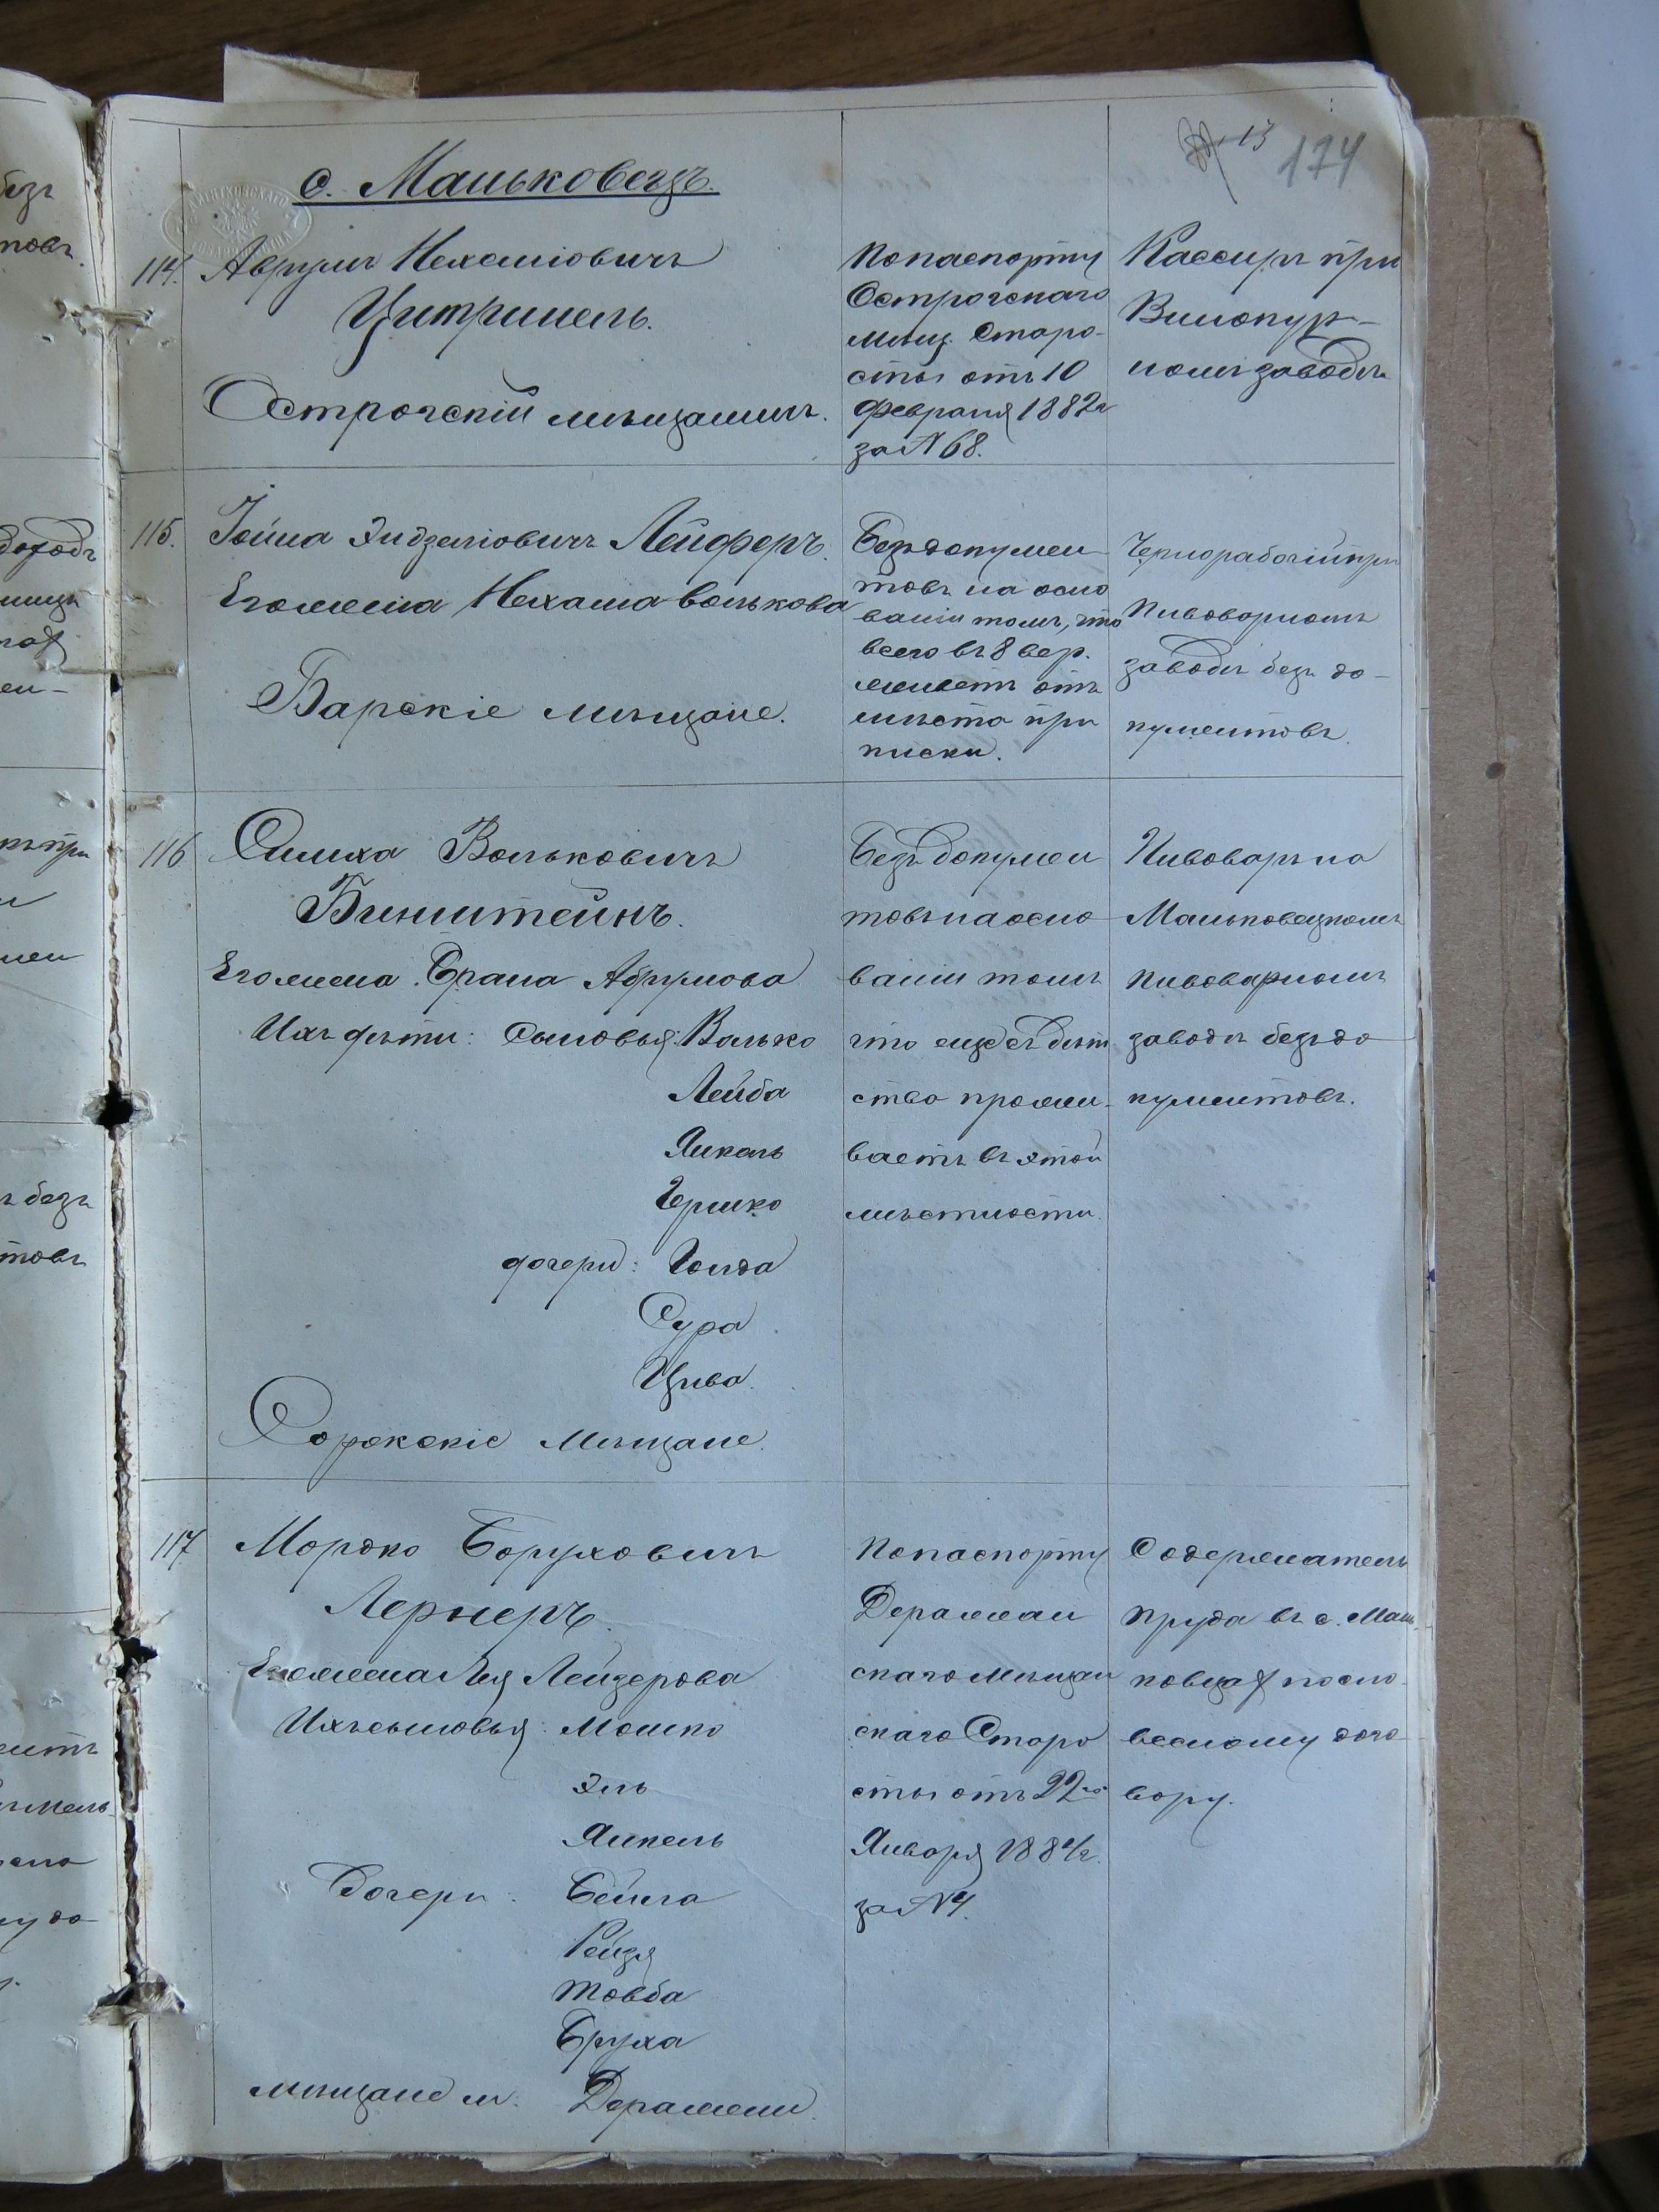 174
с. Маньковецъ.
114. Аврумъ Нехеміовичъ
Цитринель.
Острогскій мѣщанинъ.
По паспорту
Острогскаго
мѣщ. Старо-
сты отъ 10
Февраля 1882 г
за № 68.
Кассиръ при
Винокур-
номъ заводѣ
115. Іойна Эидзеліовичъ Лейферъ.
Его жена Нехама Волькова
Барскіе мѣщане.
Безъ докумен
товъ на осно
ваніи томъ, что
всего въ 8 вер.
живетъ отъ
мѣста при
писки.
Чернорабочій при
Пивоварномъ
заводѣ безъ до-
кументовъ.
116 Симха Вольковичъ
Бинштейнъ.
Его жена Брана Абрумова
Ихъ дѣти: Сыновья: Валько
Лейба
Янкель
Гершко
дочери: Голда
Сура
Цива.
Сорокскіе Мѣщане.
Безъ докумен
товъ на осно
ваніи томъ
что еще съ дѣт
ство прожи-
ваетъ въ этой
мѣстности.
Пивоваръ на
Маньковецкомъ
пивоварномъ
заводѣ безъ до
кументовъ.
117 Мордко Боруховичъ
Лернеръ.
Его жена Лея Лейзерова
Ихъ сыновья: Мошко
Эль
Янкель
Дочери: Бейла
Рейзя
Товба
Бруха
мѣщане м. Деражни.
По паспорту
Деражнян
скаго Мѣщан
скаго Старо
сты отъ 22го
Января 1882 г.
за № 4.
Содержатель
пруда въ с. Мань-
ковцахъ по сло-
весному дого-
вору.